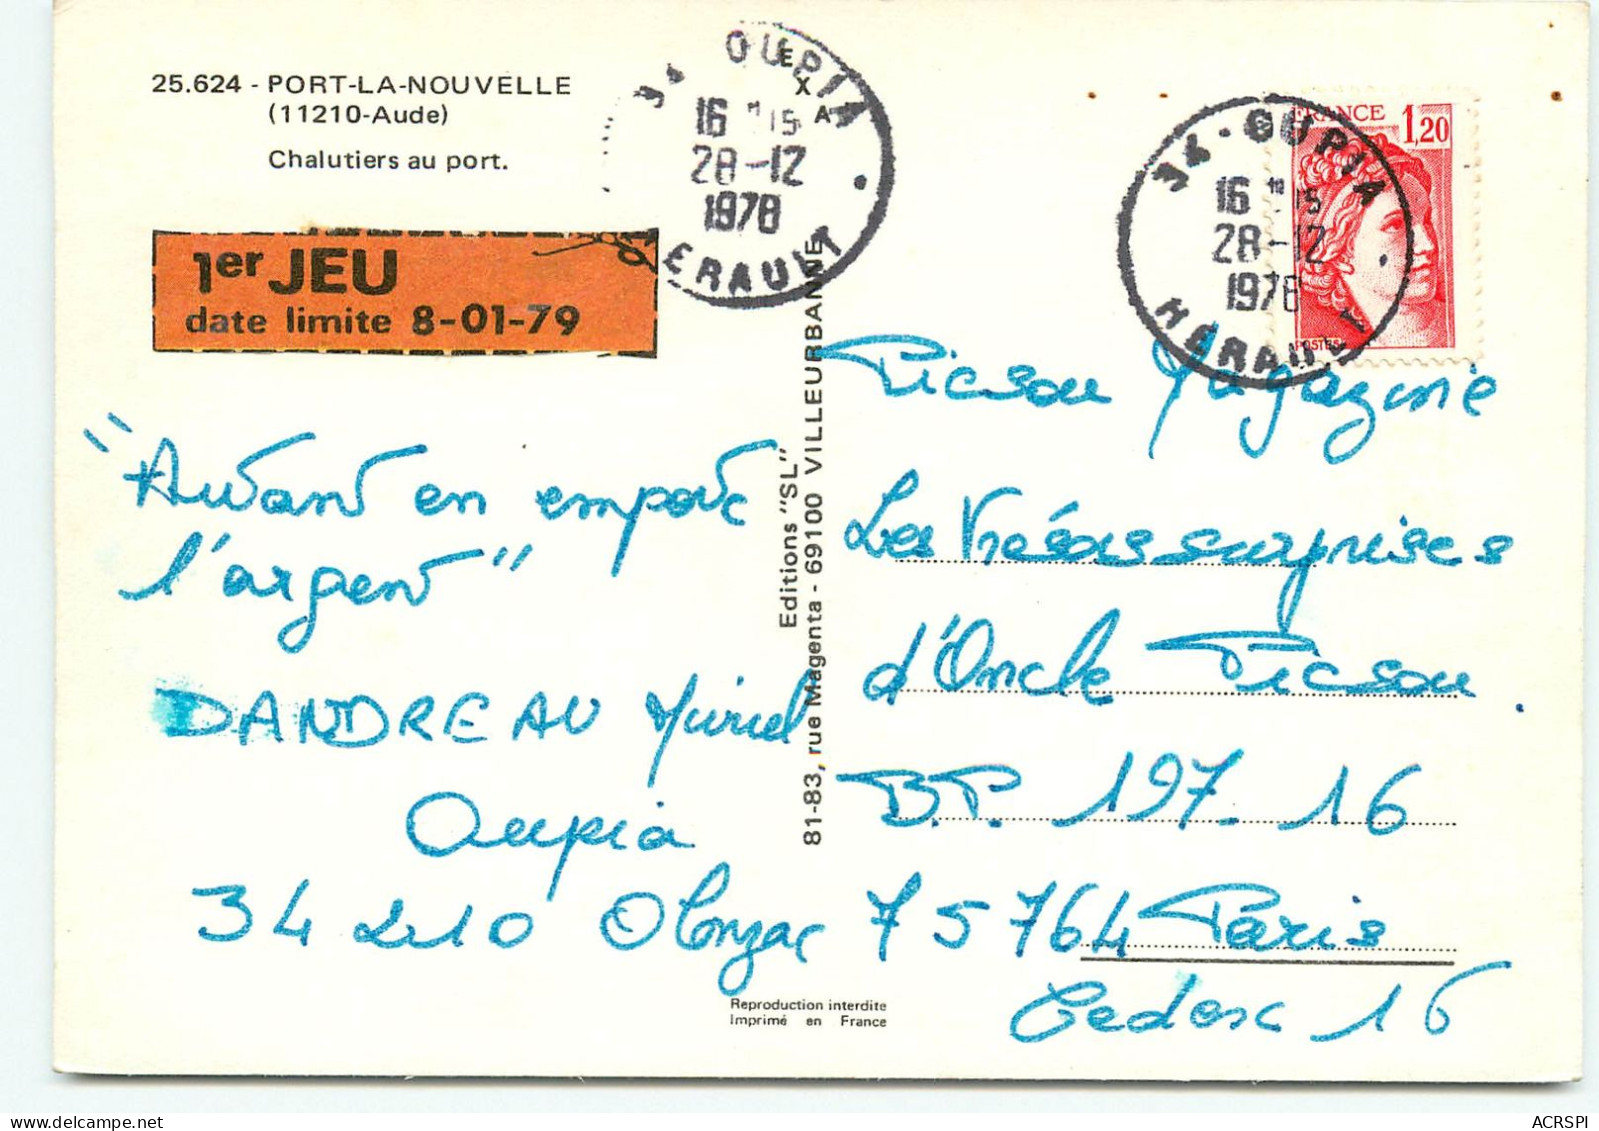 25.624 - PORT-LA-NOUVELLE
(11210-Aude)
Chalutiers au port.
1er JEU
date limite 8-01-79
"Autant en emporte
l'argent"
DANDREAU Muriel
Oupia
34210 Olonzac
34 OUPIA
16 H 15
28-12
1978
HERAULT
EXA
Editions "SL"
81-83, rue Magenta - 69100 VILLEURBANNE
Reproduction interdite
Imprimé en France
34 - OUPIA
16 H 15
28-12
1978
HÉRAULT
FRANCE 1,20
POSTES
Picsou Magazine
Les Trésors surprises
d'Oncle Picsou.
B.P. 197-16
75764 Paris
Cedex 16
ACRSPI